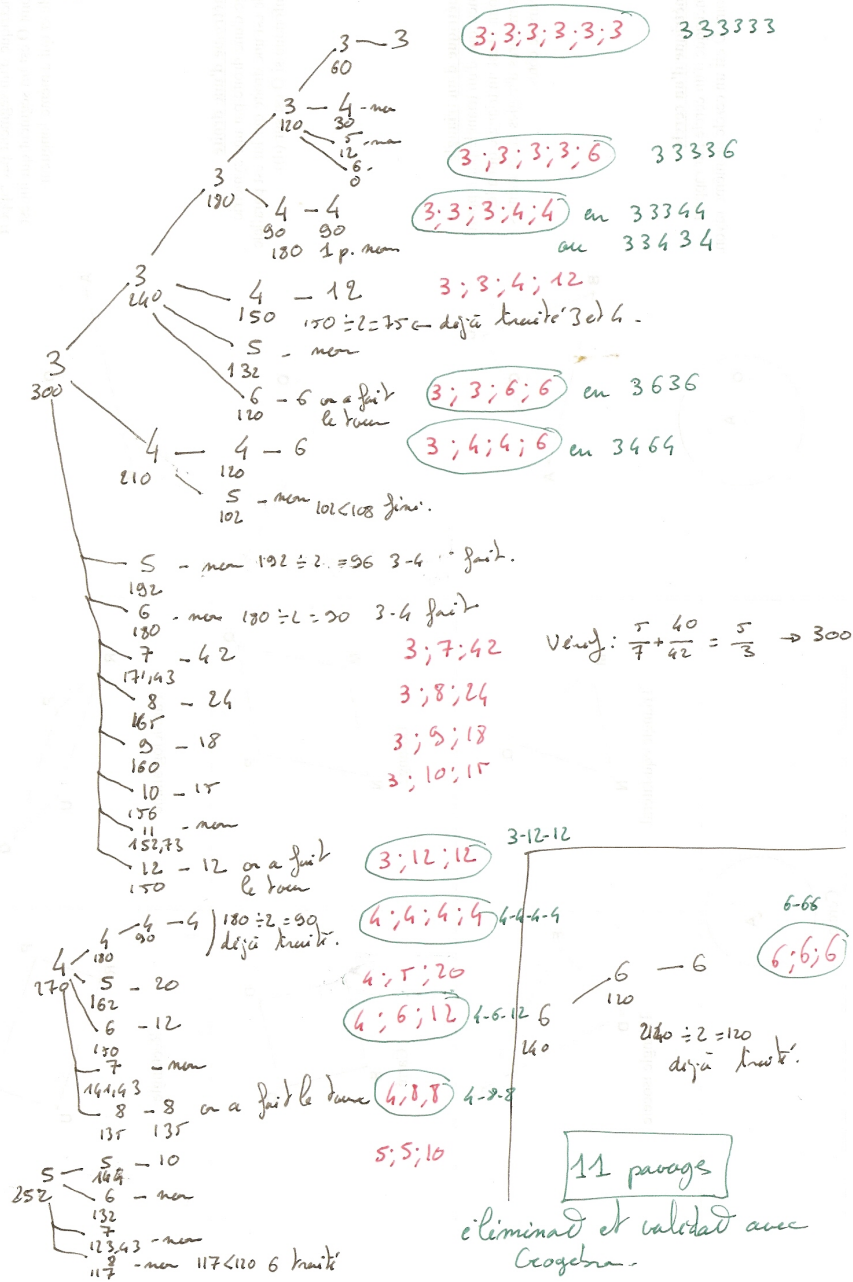 3 — 3
60
3;3;3;3;3;3
333333
3 — 4 - non
120
30
5 - non
12
6 -
0
3;3;3;3;6
33336
3
180
4 — 4
90 90
180 1 p. non
3;3;3;4;4 en 33344
ou 33434
3
240
4 — 12
150
3;3;4;12
150 ÷ 2 = 75 ← déjà traité 3 et 4.
5 - non
132
6 - 6 on a fait
120
le tour
3;3;6;6 en 3636
3
300
4 — 4 — 6
210
120
3;4;4;6 en 3464
5 - non 102<108 fini.
102
5 - non 192 ÷ 2 = 96 3-4 fait.
192
6 - non 180 ÷ 2 = 90 3-4 fait
180
7 - 42
171,43
3;7;42
Vérif : 5/7 + 40/42 = 5/3 → 300
8 - 24
165
3;8;24
9 - 18
160
3;9;18
10 - 15
156
3;10;15
11 - non
152,73
12 - 12 on a fait
150
le tour
3;12;12
3-12-12
4
270
4 — 4 — 4
180
90
180 ÷ 2 = 90
déjà traité.
4;4;4;4
4-4-4-4
5 - 20
162
4;5;20
6 - 12
150
4;6;12
4-6-12
7 - non
141,43
8 - 8 on a fait le tour
135 135
4;8;8
4-8-8
5
252
5 - 10
144
5;5;10
6 - non
132
7 - non
123,43
8 - non 117<120 6 traité
117
6-66
6;6;6
6
240
6 — 6
120
240 ÷ 2 = 120
déjà traité.
11 pavages
éliminat et validat avec
Geogebra.